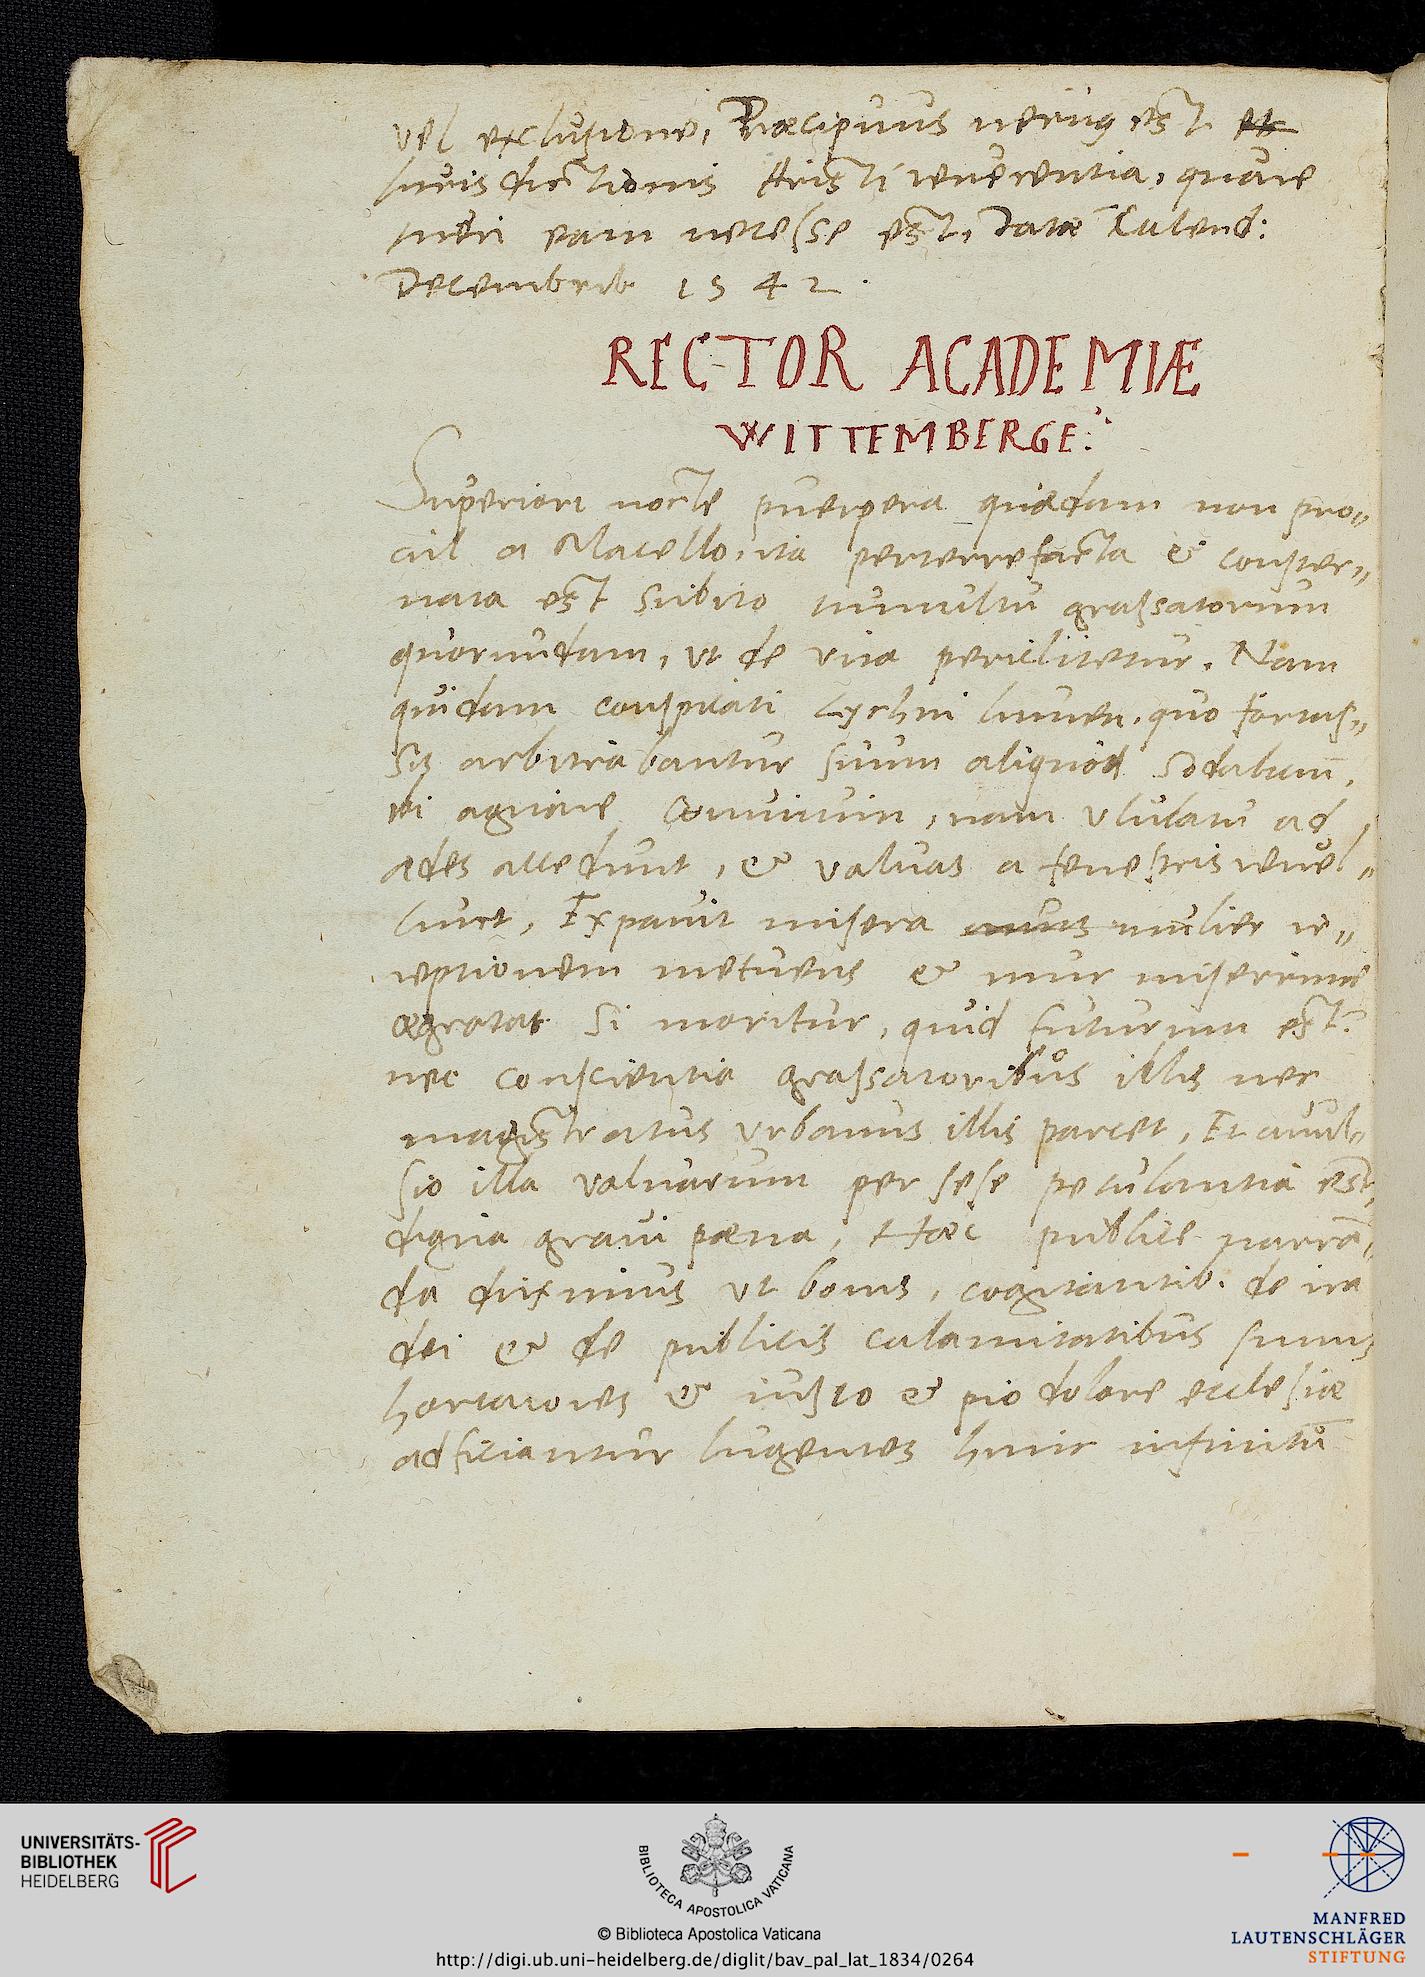 vel exclusione, Præcipuus neruus est et
iurisdictionis Christi reuerentia, quare
tueri eam necesse est, Datæ Calend:
Decembrib 1542.
RECTOR ACADEMIÆ
WITTEMBERGE:
Superiori nocte puerpera quædam non pro„
cul a Macello, ita perterrefacta & conster„
nata est subito tumultu grassatorum
quorundam, ut de vita periclitetur. Nam
quidam conspicati Lychni lumen, quo fortas„
sis arbitrabantur suum aliquod sodalium
agitare conuiuium, nam vlulatu ad
ædes accedunt, & valuas a fenestris reuel„
lunt, Expauit misera mulier ir„
reptionem metuens & nunc miserrime
ægrotat si moritur, quid futurum est?
nec conscientia grassatoribus illis nec
magistratus vrbanus illis parcet, Et auul„
sio illa valuarum per sese petulantia est,
digna graui pœna, Hæc publice narrā„
da duximus ut bonis, cogitantib. de ira
dei & de publicis calamitatibus simus
hortatores & iusto & pio dolore ecclesiæ
adficiantur lugentes hunc infinitū
UNIVERSITÄTS-
BIBLIOTHEK
HEIDELBERG
BIBLIOTECA APOSTOLICA VATICANA
© Biblioteca Apostolica Vaticana
http://digi.ub.uni-heidelberg.de/diglit/bav_pal_lat_1834/0264
MANFRED
LAUTENSCHLÄGER
STIFTUNG